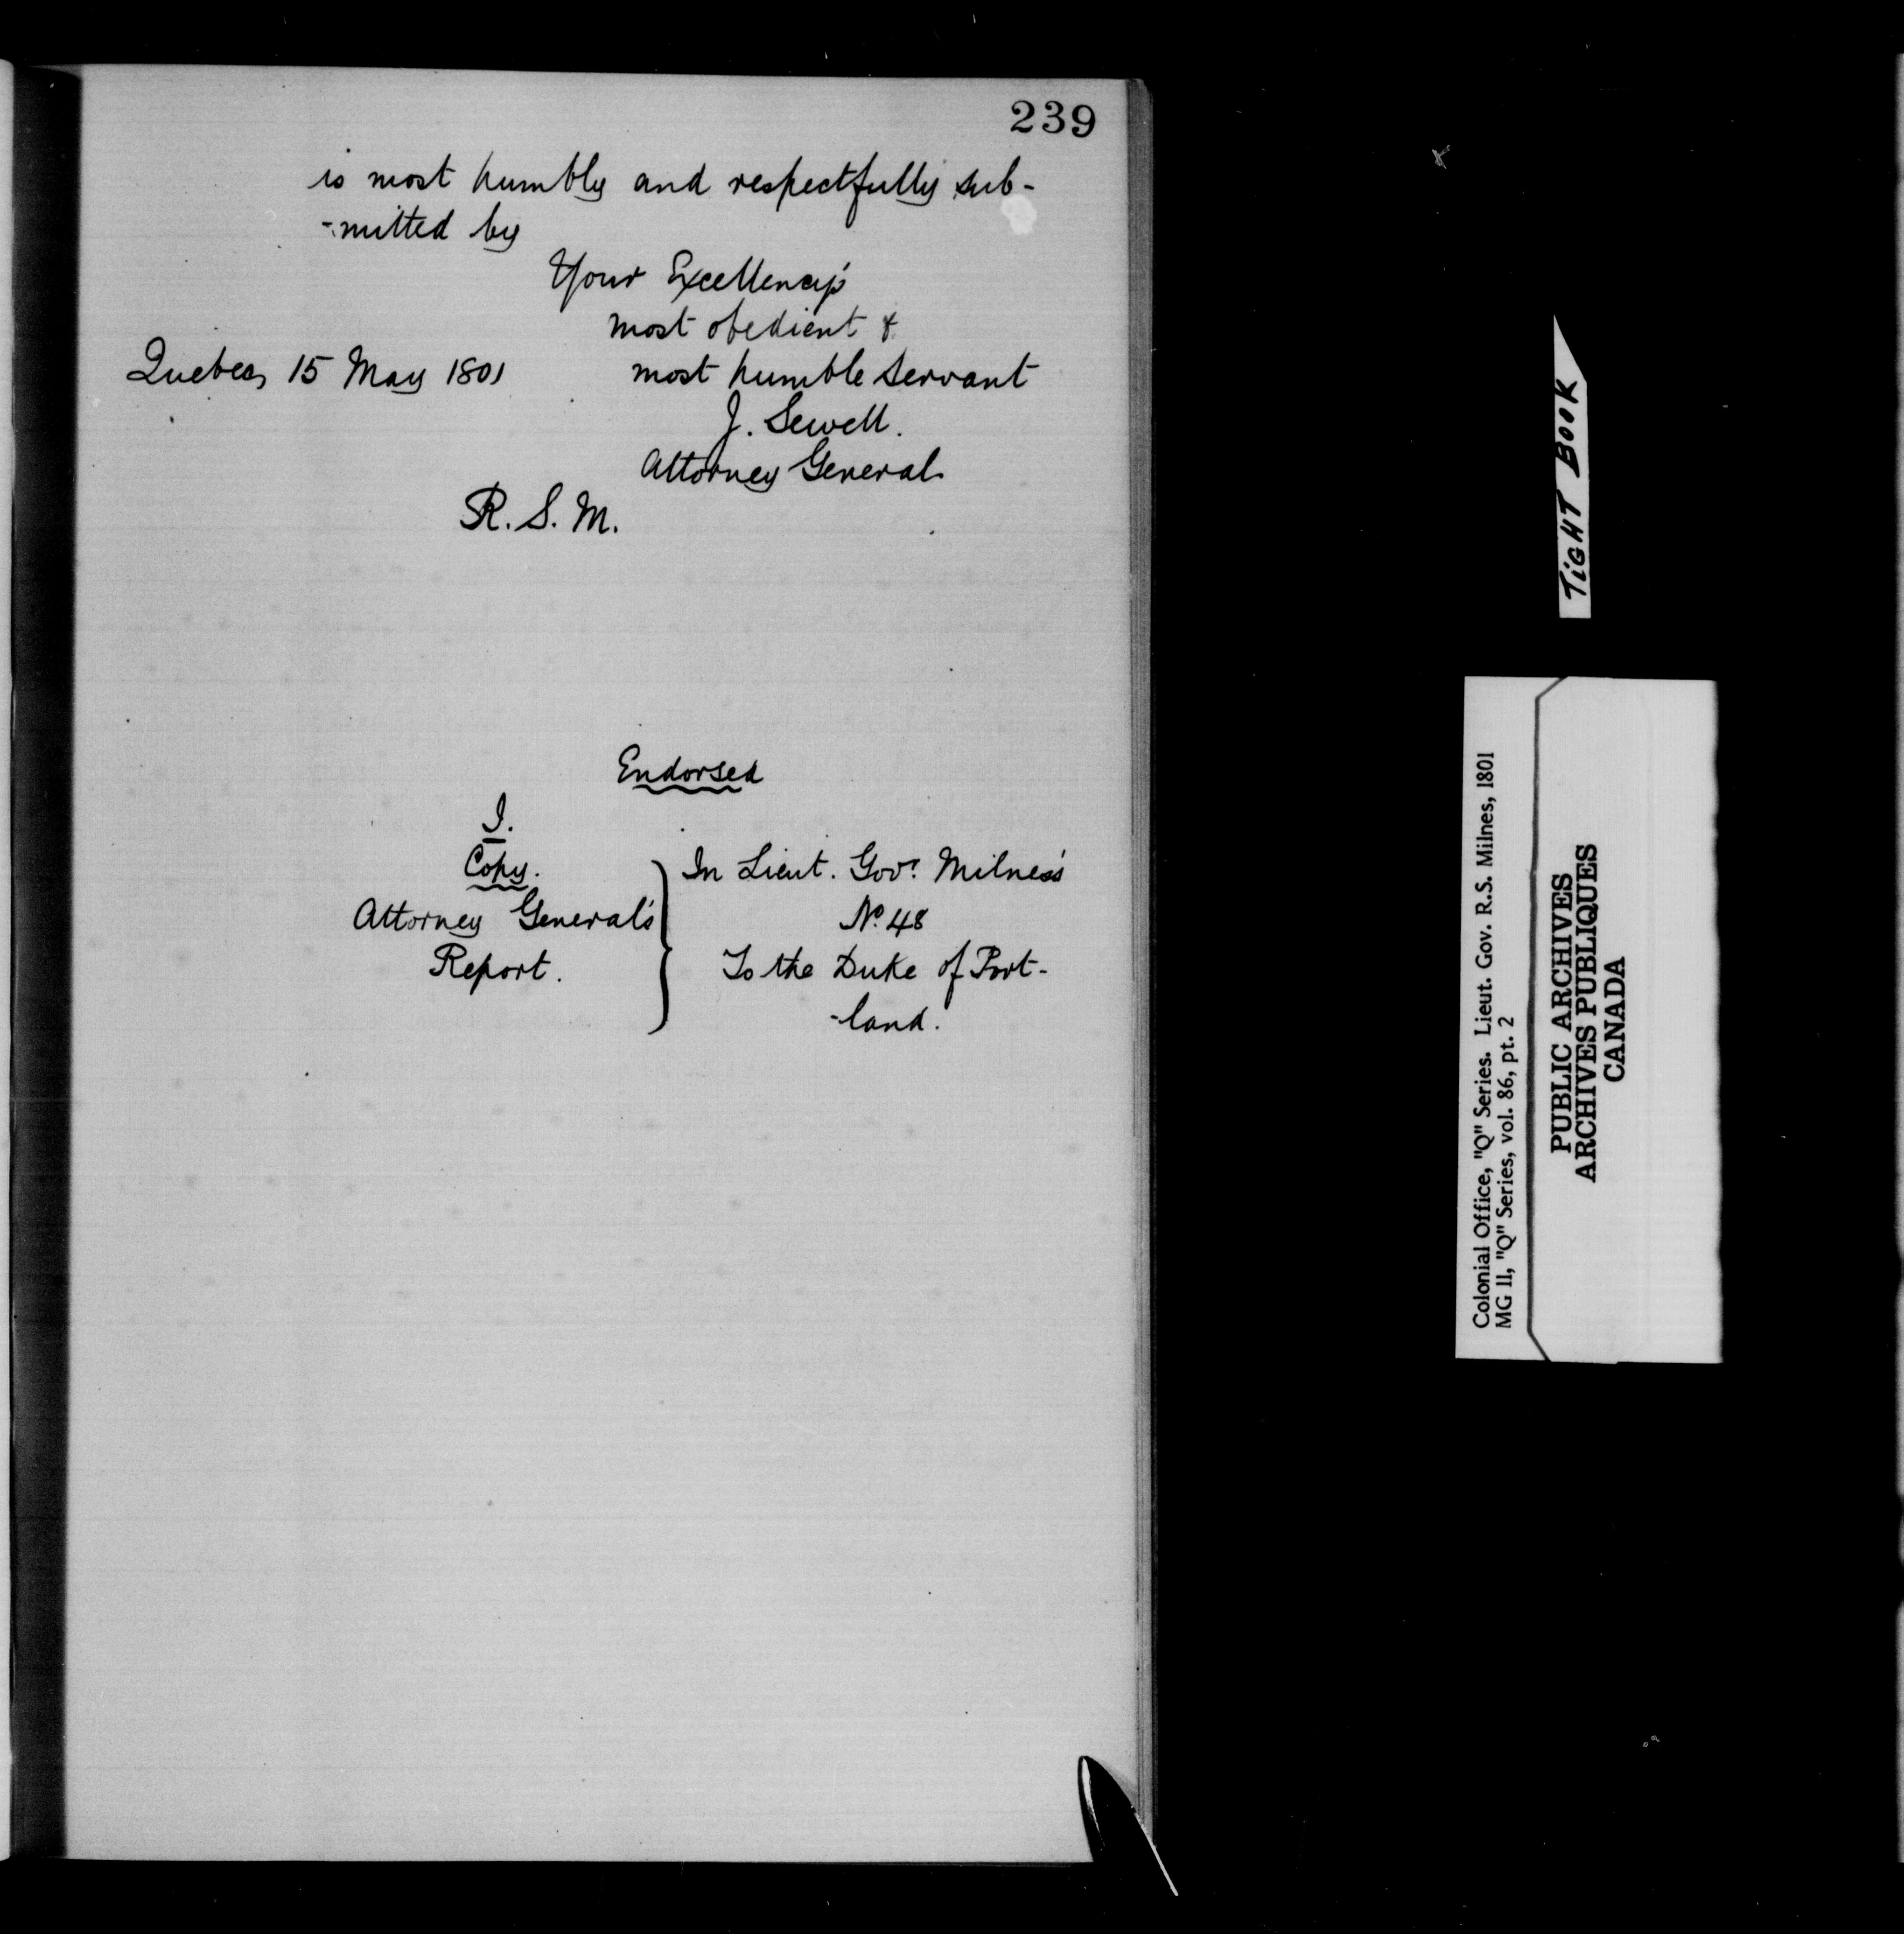 239
is most humbly and respectfully sub-
-mitted by
Your Excellency's
most obedient &
Quebec, 15 May 1801 most humble servant
J. Sewell.
Attorney General
R. S. M.
Endorsed
I.
Copy.
Attorney General's
Report.
In Lieut. Govr. Milnes's
No. 48
To the Duke of Port-
-land.
TIGHT BOOK
Colonial Office, "Q" Series. Lieut. Gov. R.S. Milnes, 1801
MG 11, "Q" Series, vol. 86, pt. 2
PUBLIC ARCHIVES
ARCHIVES PUBLIQUES
CANADA